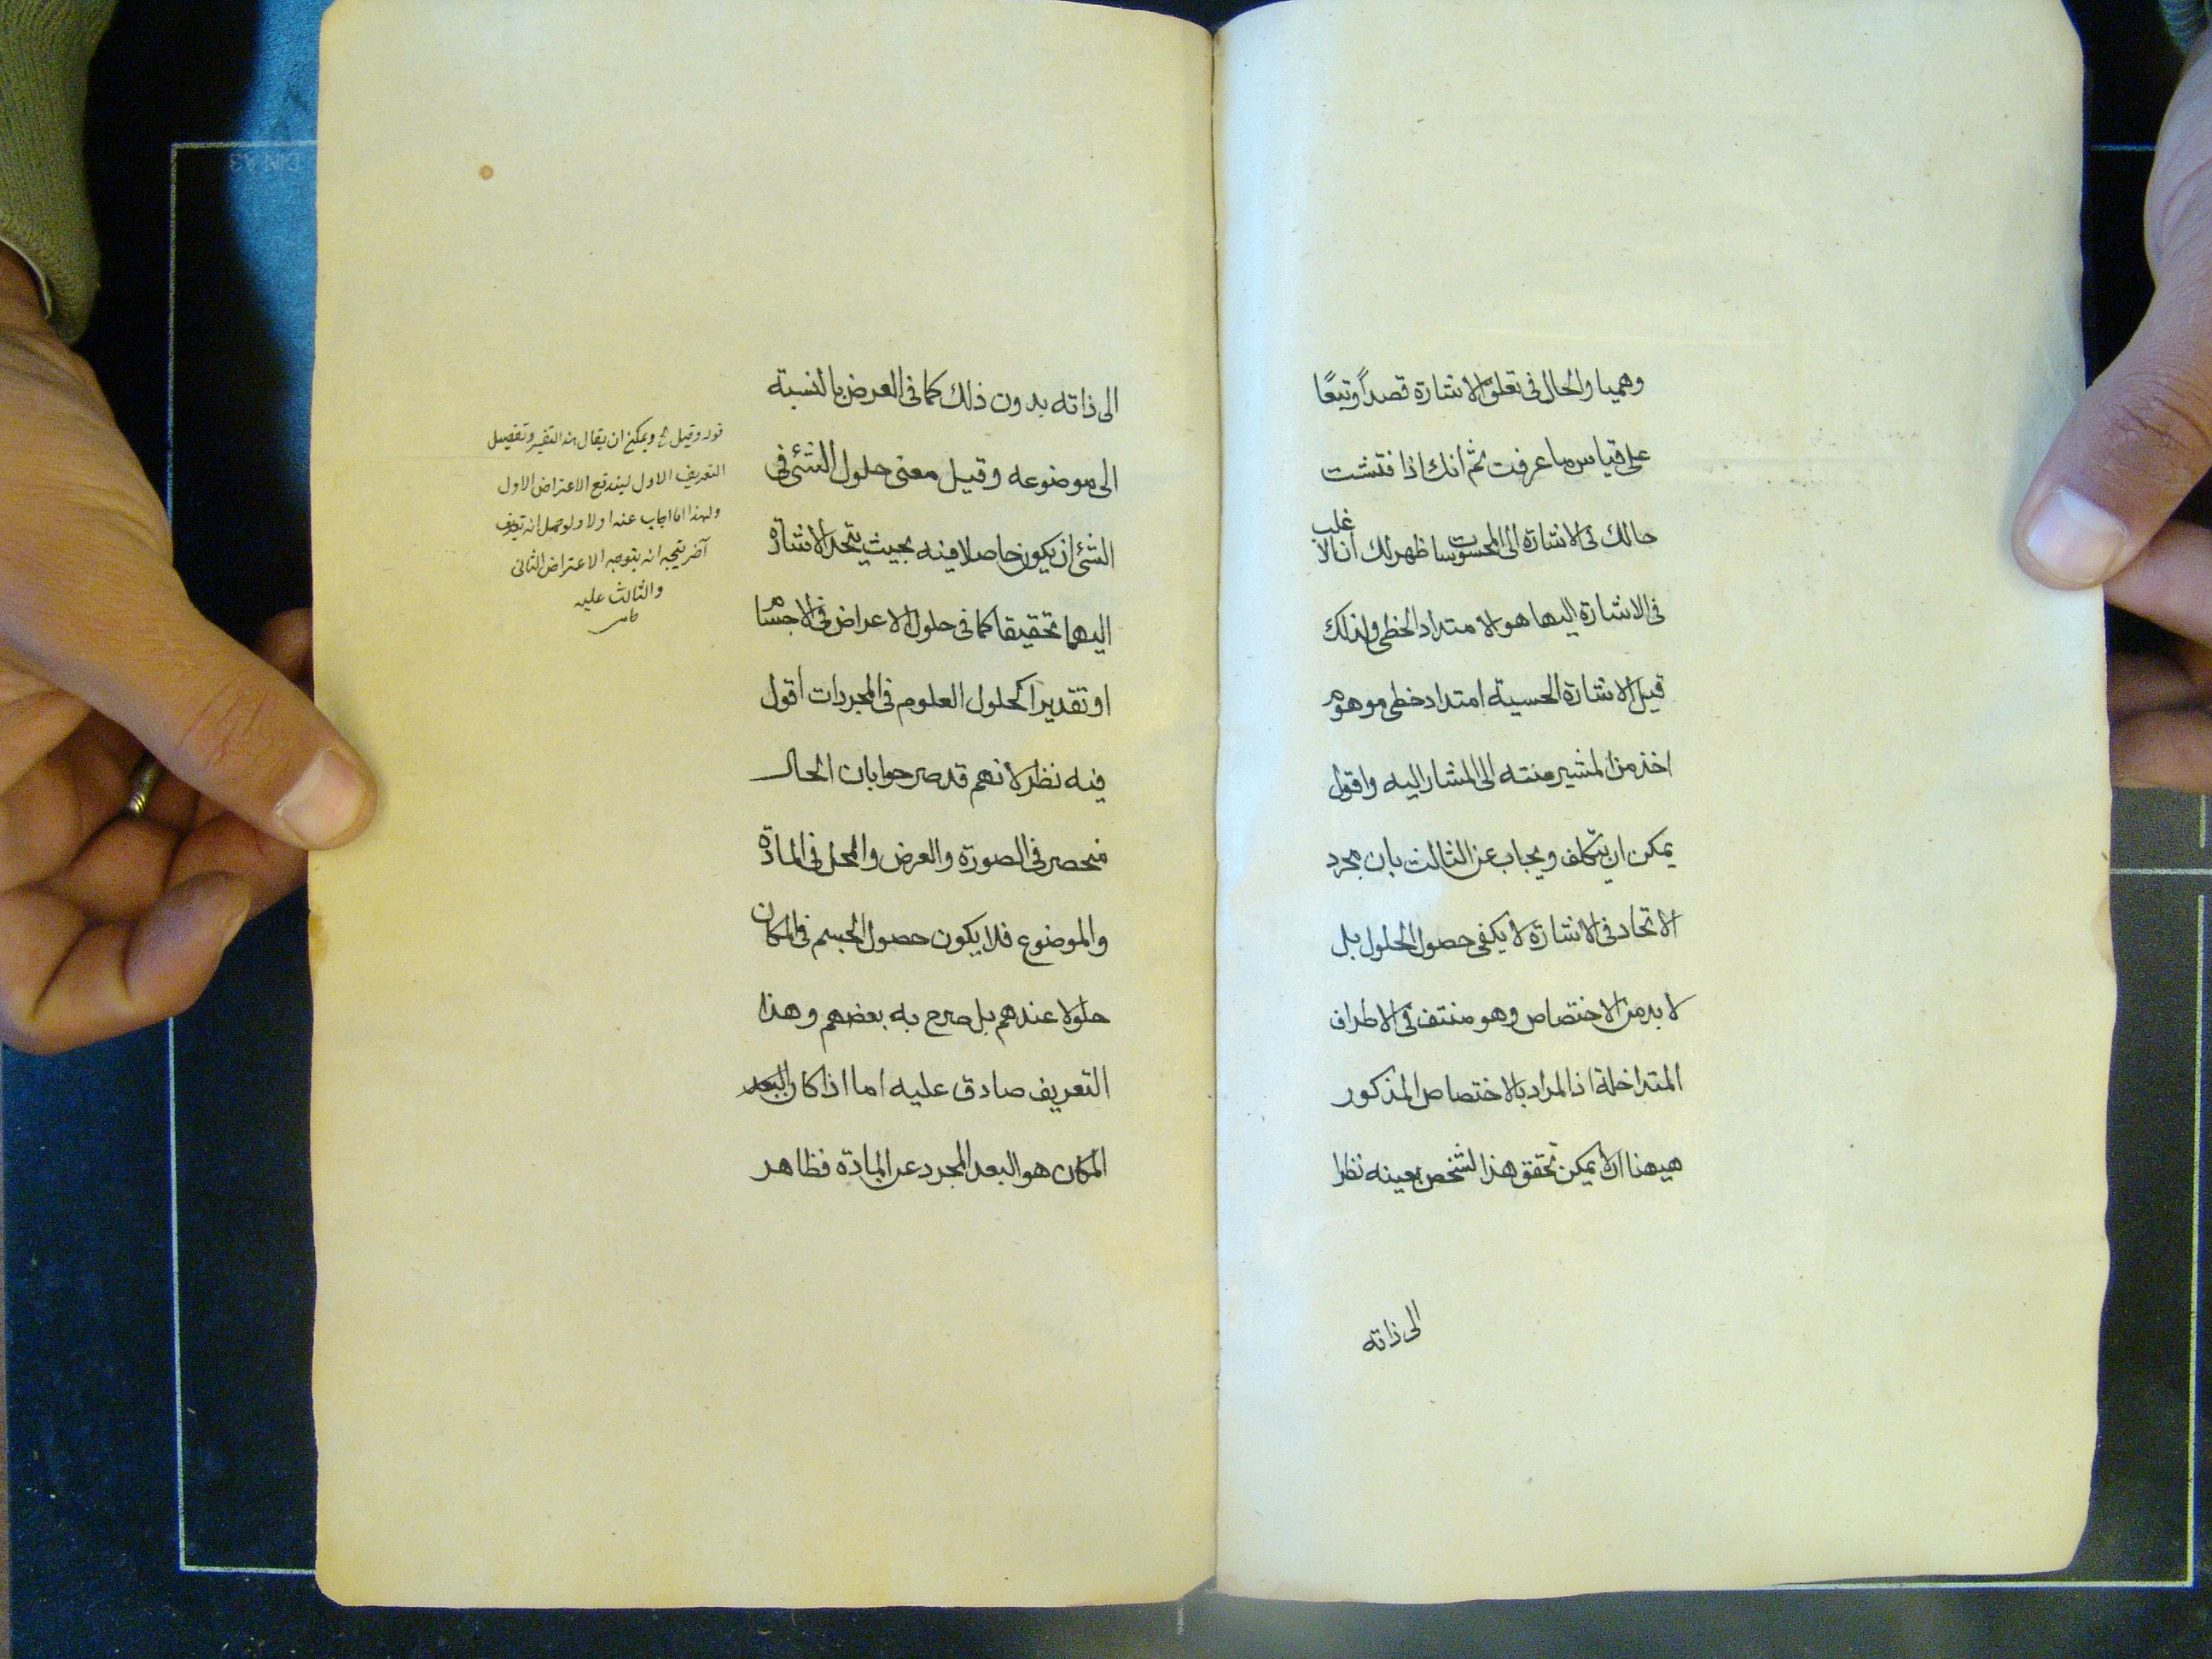 وهميا والحال فى تعلق الاشارة قصداً وتبعًا
على قياس ما عرفت ثم انك اذا فتشت
حالك فى الاشارة الى المحسوسات ظهر لك ان الاغلب
فى الاشارة اليها هو الامتداد الخطى ولذلك
قيل الاشارة الحسية امتداد خطى موهوم
اخذ من المشير منته الى المشار اليه واقول
يمكن ان يتكلف ويجاب عن الثالث بان مجرد
الاتحاد فى الاشارة لا يكفى حصول الحلول بل
لا بد من الاختصاص وهو منتف فى الاطراف
المتداخلة اذ المراد بالاختصاص المذكور
هيهنا ان لا يمكن تحقق هذا الشخص بعينه نظرا
الى ذاته
الى ذاته بدون ذلك كما فى العرض بالنسبة
الى موضوعه وقيل معنى حلول الشئ فى
الشئ ان يكون حاصلا فيه بحيث يتحد الاشارة
اليهما تحقيقا كما فى حلول الاعراض فى الاجسام
او تقديرا كحلول العلوم فى المجردات اقول
فيه نظر لانهم قد صرحوا بان الحال
منحصر فى الصورة والعرض والمحل فى المادة
والموضوع فلا يكون حصول الجسم فى المكان
حلولا عندهم بل صرح به بعضهم وهذا
التعريف صادق عليه اما اذا كان البعد
المكان هو البعد المجرد عن المادة فظاهر
قوله وقيل الخ ويمكن ان يقال هذا تفسير وتفصيل
التعريف الاول ليندفع الاعتراض الاول
ولهذا اجاب عنه اولا ولو حمل انه تعريف
آخر يتجه انه يتوجه الاعتراض الثانى
والثالث عليه